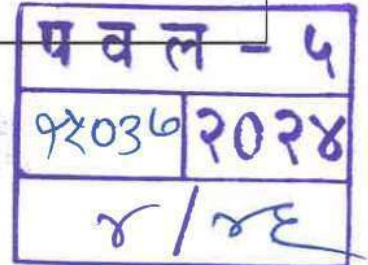 पवल - ५
१५०३७ २०२४
४/४६